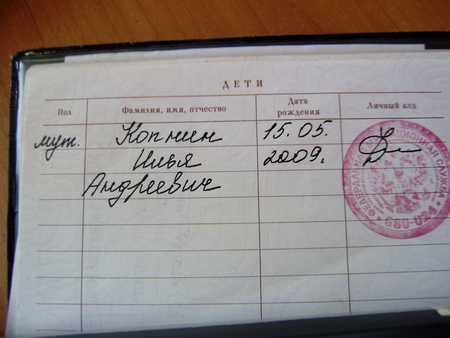 ДЕТИ
Пол Фамилия, имя, отчество Дата рождения Личный код
муж. Копнин 15.05.
Илья 2009г.
Андреевич
ФЕДЕРАЛЬНАЯ МИГРАЦИОННАЯ СЛУЖБА
680-024